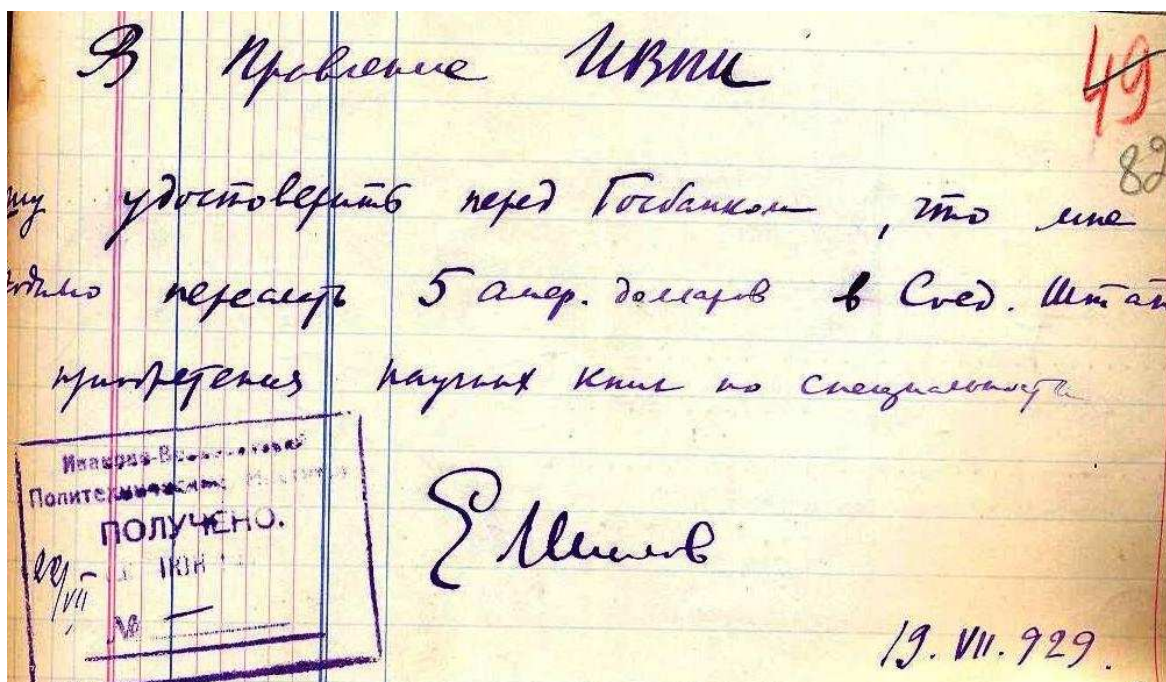 В Правление ИВПИ
49
82
удостоверить перед Госбанком, что мне
переслать 5 амер. долларов в Соед. Штат
приобретения научных книг по специальности
Иваново-В
Политехнический
ПОЛУЧЕНО.
22/VII
№ —
Е Шилов
19. VII. 929.